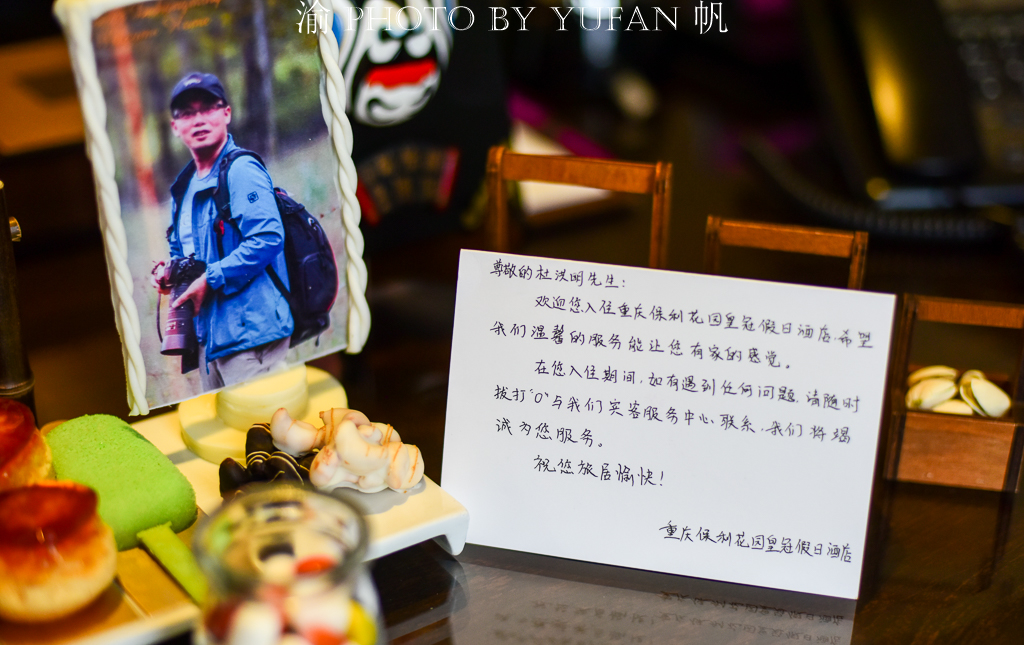 渝 PHOTO BY YUFAN 帆
尊敬的杜洪明先生：
欢迎您入住重庆保利花园皇冠假日酒店，希望
我们温馨的服务能让您有家的感觉。
在您入住期间，如有遇到任何问题，请随时
拨打“0”与我们宾客服务中心联系，我们将竭
诚为您服务。
祝您旅居愉快！
重庆保利花园皇冠假日酒店